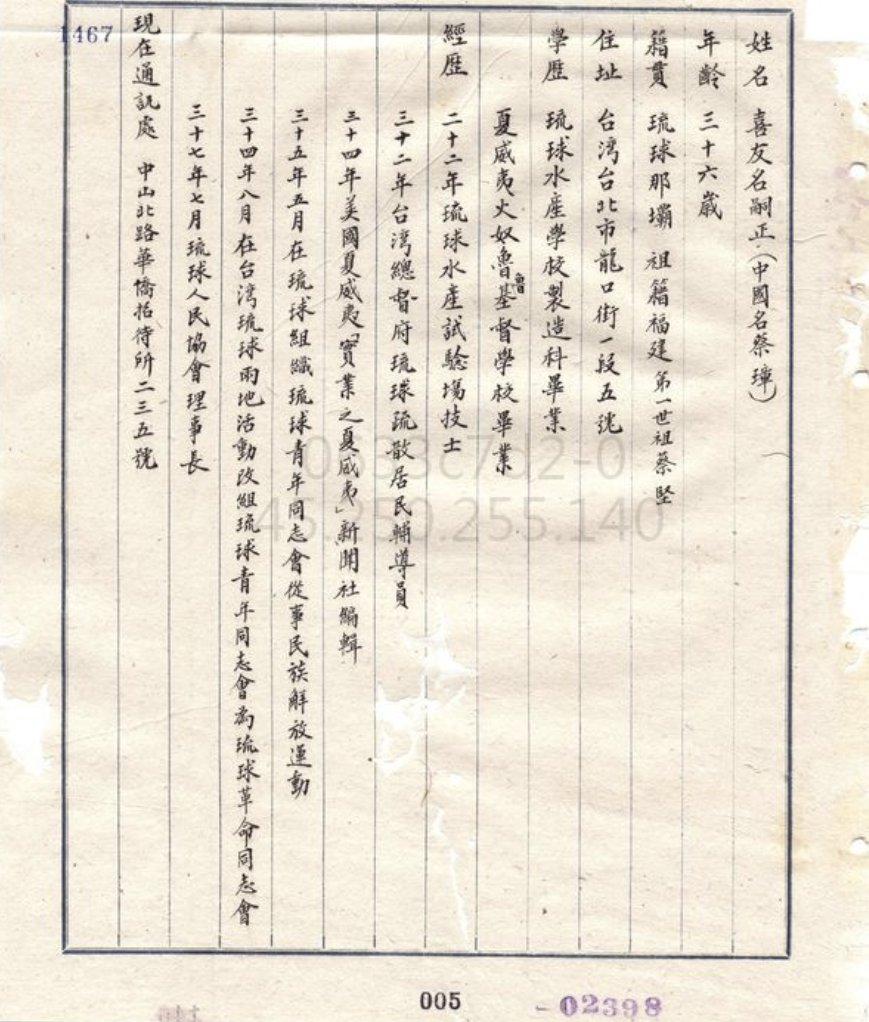 1467
姓名 喜友名嗣正(中國名蔡璋)
年齡 三十六歲
籍貫 琉球那壩 祖籍福建第一世祖蔡堅
住址 台灣台北市龍口街一段五號
學歷 琉球水產學校製造科畢業
夏威夷火奴魯魯基督學校畢業
經歷 二十二年琉球水產試驗場技士
三十二年台灣總督府琉球疏散居民輔導員
三十四年美國夏威夷「實業之夏威夷」新聞社編輯
三十五年五月在琉球組織琉球青年同志會從事民族解放運動
三十四年八月在台灣琉球兩地活動改組琉球青年同志會為琉球革命同志會
三十七年七月琉球人民協會理事長
現在通訊處 中山北路華僑招待所二三五號
0633c7d2-0
45.250.255.140
005
-02398